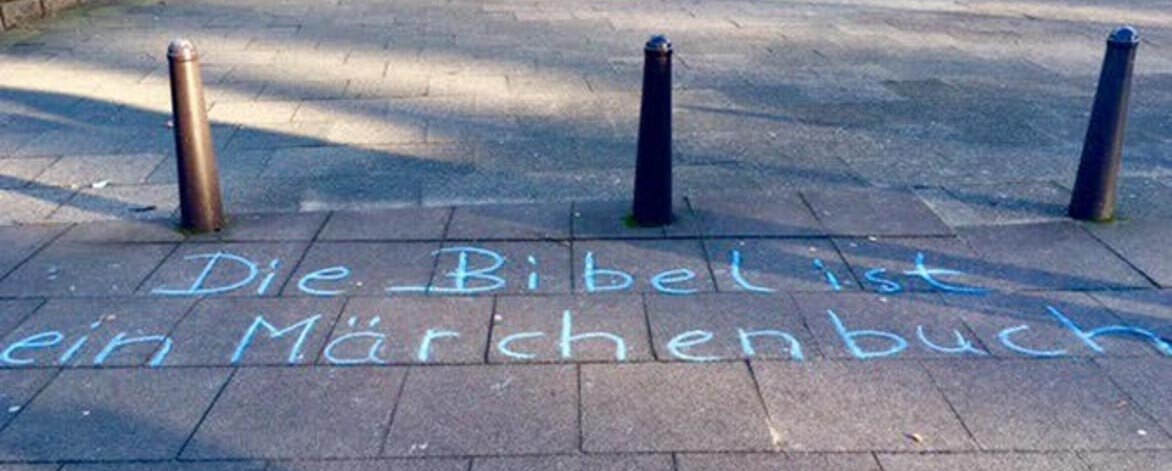 Die Bibel ist
ein Märchenbuch